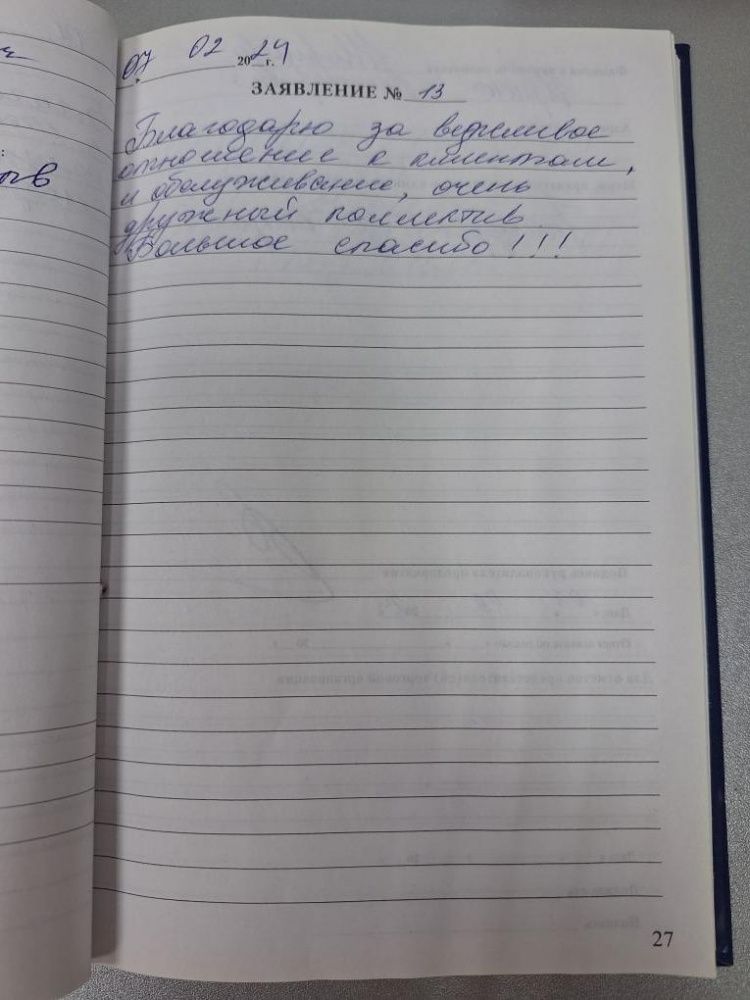 07 02 2024 г.
ЗАЯВЛЕНИЕ № 13
Благодарю за вежливое
отношение к клиентам,
и обслуживание, очень
дружный коллектив
Большое спасибо !!!
27